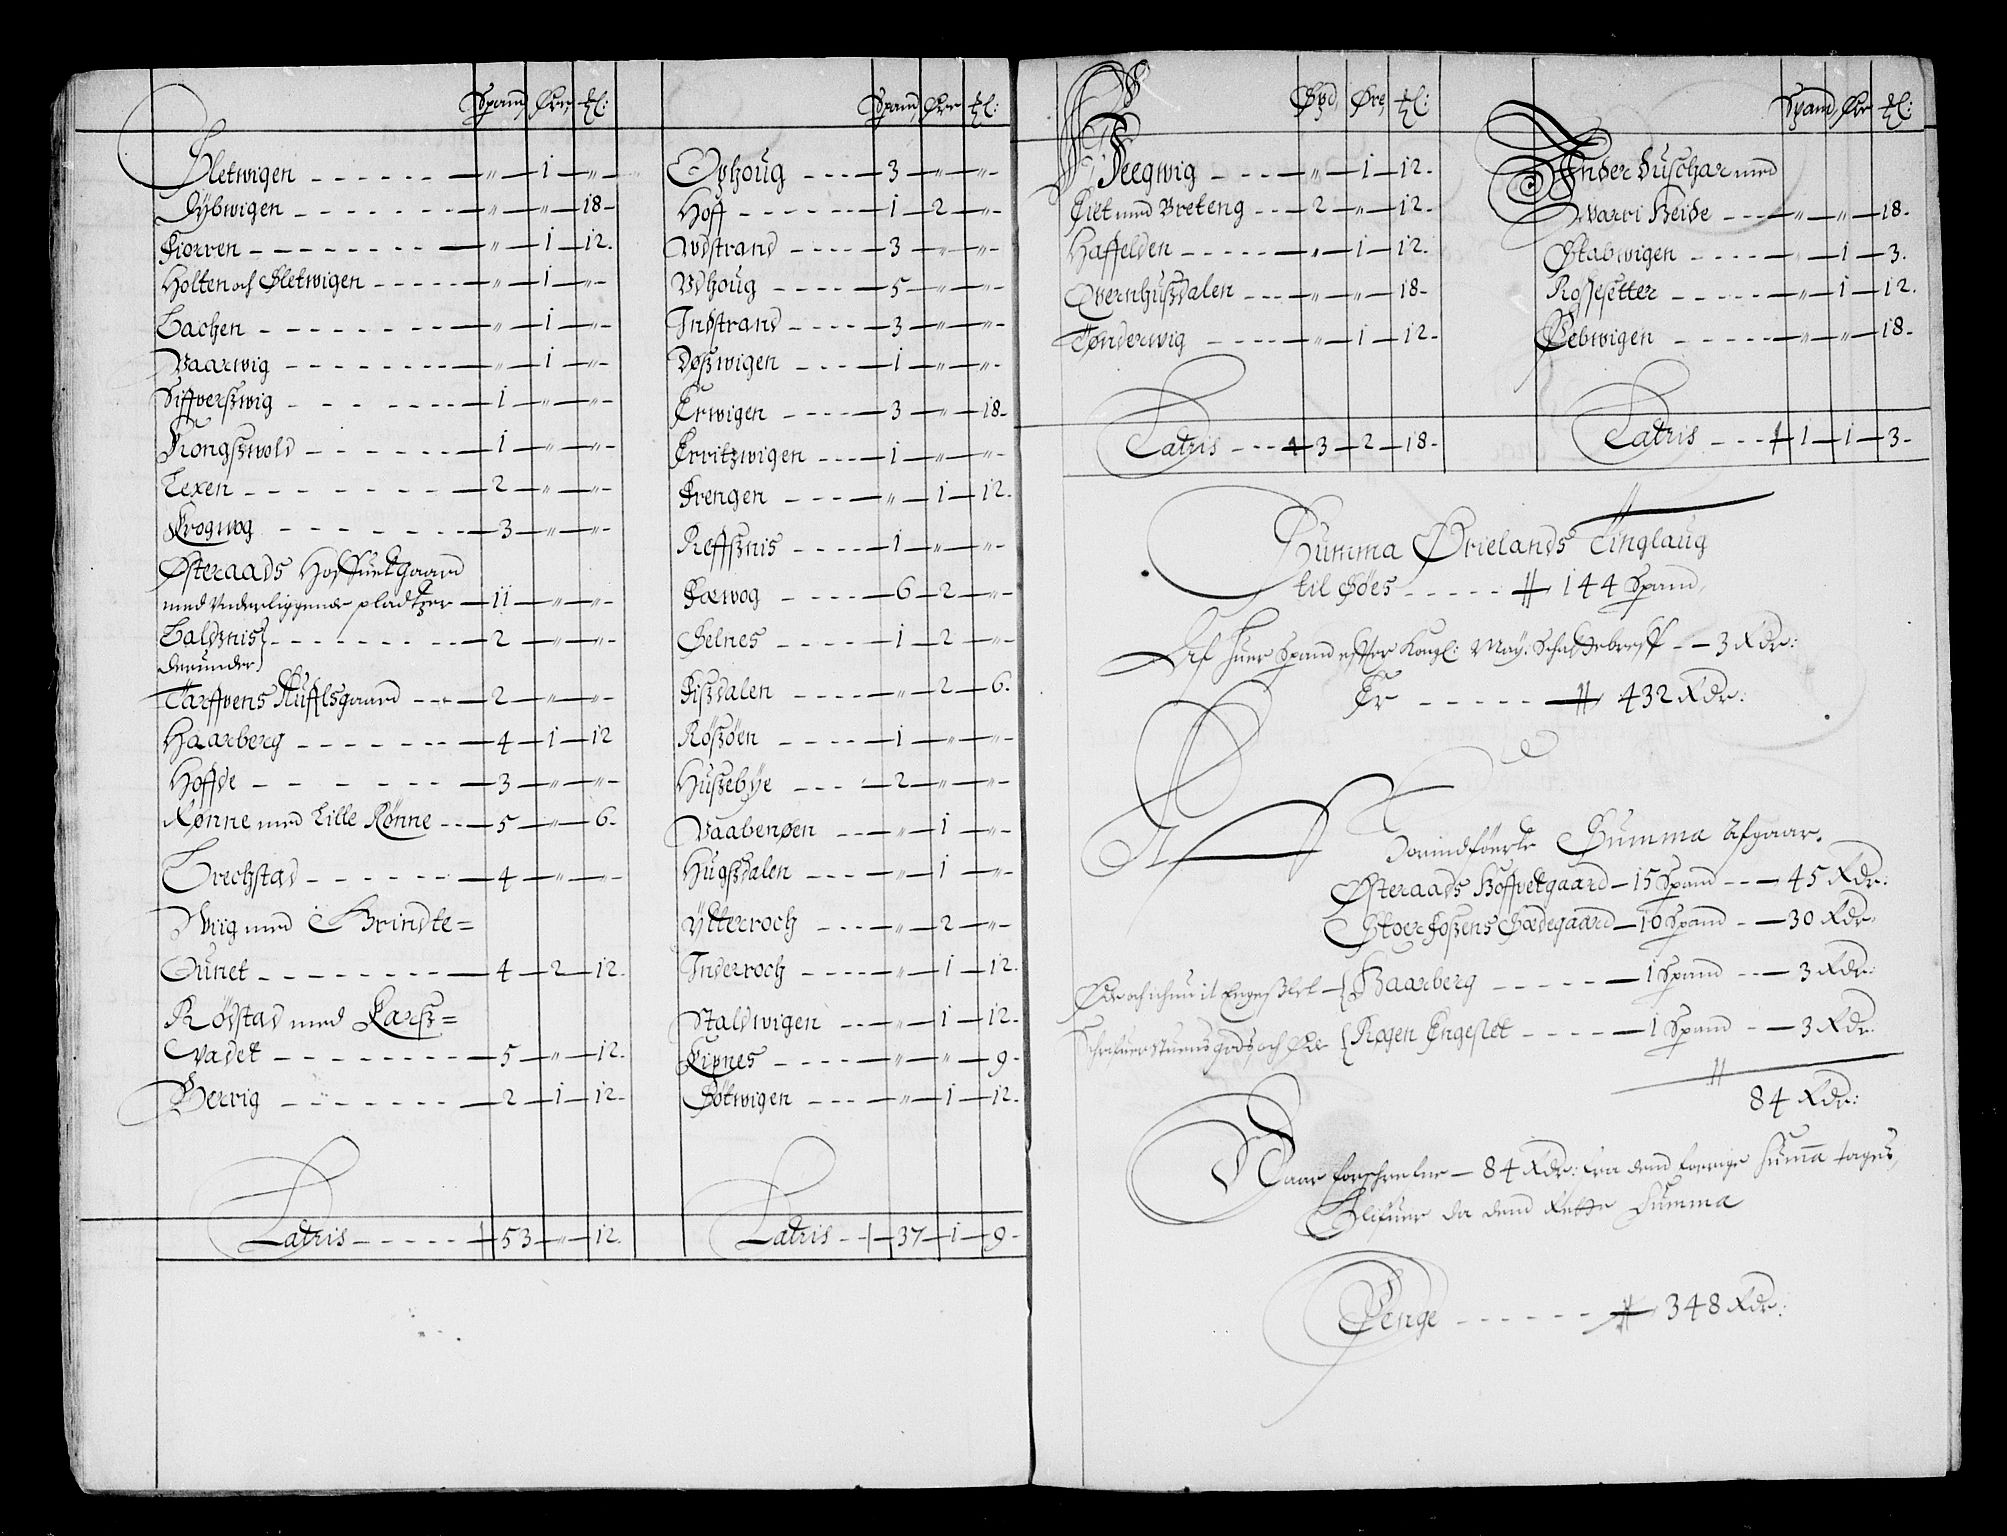 Spand Øre ℔:
Sletwigen - - - „ 1 „
Dybwigen - - - „ „ 18
Kiorren - - - „ 1 12
Holten och Sletwigen - - - „ 1 „
Bachen - - - „ 1 „
Vaarwig - - - „ 1 „
Siffverßwig - - - 1 „ „
Kongßwold - - - 1 „ „
Texen - - - 2 „ „
Krogwog - - - 3 „ „
Østeraads Hoffuetgaard
med Underliggende pladtzer 11 „ „
Baldznis - - - 2 „ „
derunder
Tarffvens Kufflsgaard - - - 2 „ „
Haarberg - - - 4 1 12
Hoffde - - - 3 „ „
Rønne med Lille Rønne - - 5 „ 6
Brechstad - - - 4 „ „
Wiig med Grindte=
Tunet - - - 4 2 12
Rödstad med Karß=
Vadet - - - 5 „ 12
Bervig - - - 2 1 12
Latris - - - 53 „ 12
Spand Øre ℔:
Ophoug - - - 3 „ „
Hoff - - - 1 2 „
Udstrand - - - 3 „ „
Udhoug - - - 5 „ „
Indstrand - - - 3 „ „
Døßwigen - - - 1 „ „
Erwigen - - - 3 „ 18
Ervitzwigen - - - 1 „ „
Krengen - - - „ 1 12
Reffßnis - - - 1 „ „
Fæwog - - - 6 2 „
Selnes - - - 1 2 „
Fißdalen - - - „ 2 6
Rößöen - - - 1 „ „
Hußebye - - - 2 „ „
Vaabenøen - - - „ 1 „
Hugßdalen - - - „ 1 „
Ytterroch - - - „ 2 „
Inderroch - - - „ 1 12
Staldwigen - - - „ 1 12
Lipnes - - - „ „ 9
Bötwigen - - - „ 1 12
Latris - - 37 1 9
Spd Øre ℔:
Teegwig - - - „ 1 12
Fiet med Breteng - - 2 „ 12
Haffelden - - - „ 1 12
Qvernhußdalen - - - „ „ 18
Tønderwig - - - „ 1 12
Latris - - - 3 2 18
Spand Øre ℔:
Inder Duschar med
Warri Heide - - - „ „ 18
Stabwigen - - - „ 1 3
Rossesetter - - - „ 1 12
Sebwigen - - - „ „ 18
Latris - - - 1 1 3
Summa Ørielands Tinglaug
til Søes - - - 144 Spand
Af huer Spand effter Kongl: May: Schattebreff - - 3 Rdr:
Er - - - 432 Rdr:
Forindførte Summa Afgaar.
Østeraads Hoffvetgaard - 15 Spand - - 45 Rdr:
Stoer Foßens Sædegaard - 10 Spand - - 30 Rdr.
Baarberg - - - 1 Spand - - 3 Rdr:
Røgen Engeslet - - - 1 Spand - - 3 Rdr.
84 Rdr:
Naar forschrefne - 84 Rdr: fra dend forrige Summa tages,
Blifuer da dend Rette Summa
Penge - - - 348 Rdr: